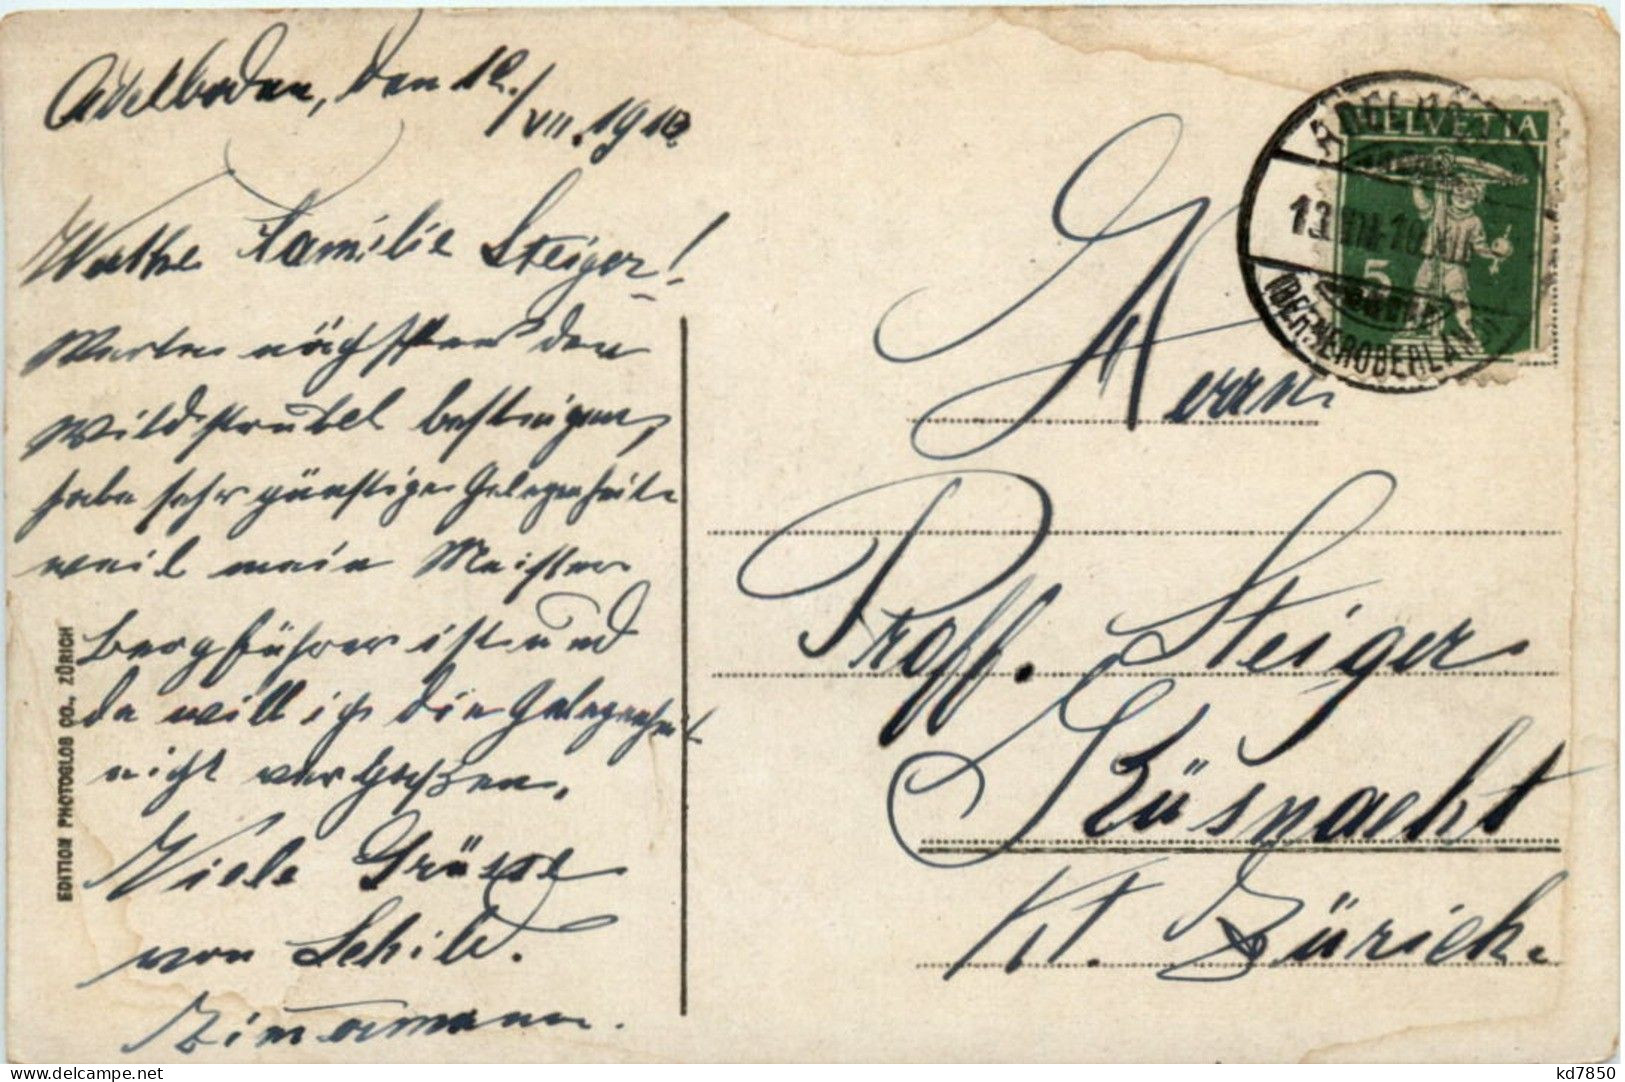 Adelboden, den 12./VII. 1910.
Werthe Familie Steiger!
Werde nächstens den
Wildstrubel besteigen,
habe sehr günstige Gelegenheit
weil mein Meister
Bergführer ist und
da will ich die Gelegenheit
nicht verpassen.
Viele Grüsse
von Schild.
Zimmermann.
EDITION PHOTOGLOB CO., ZÜRICH
HELVETIA
5
ADELBODEN
(BERNEROBERLAND)
Herrn
Proff. Steiger
Küsnacht
Kt. Zürich.
kd7850